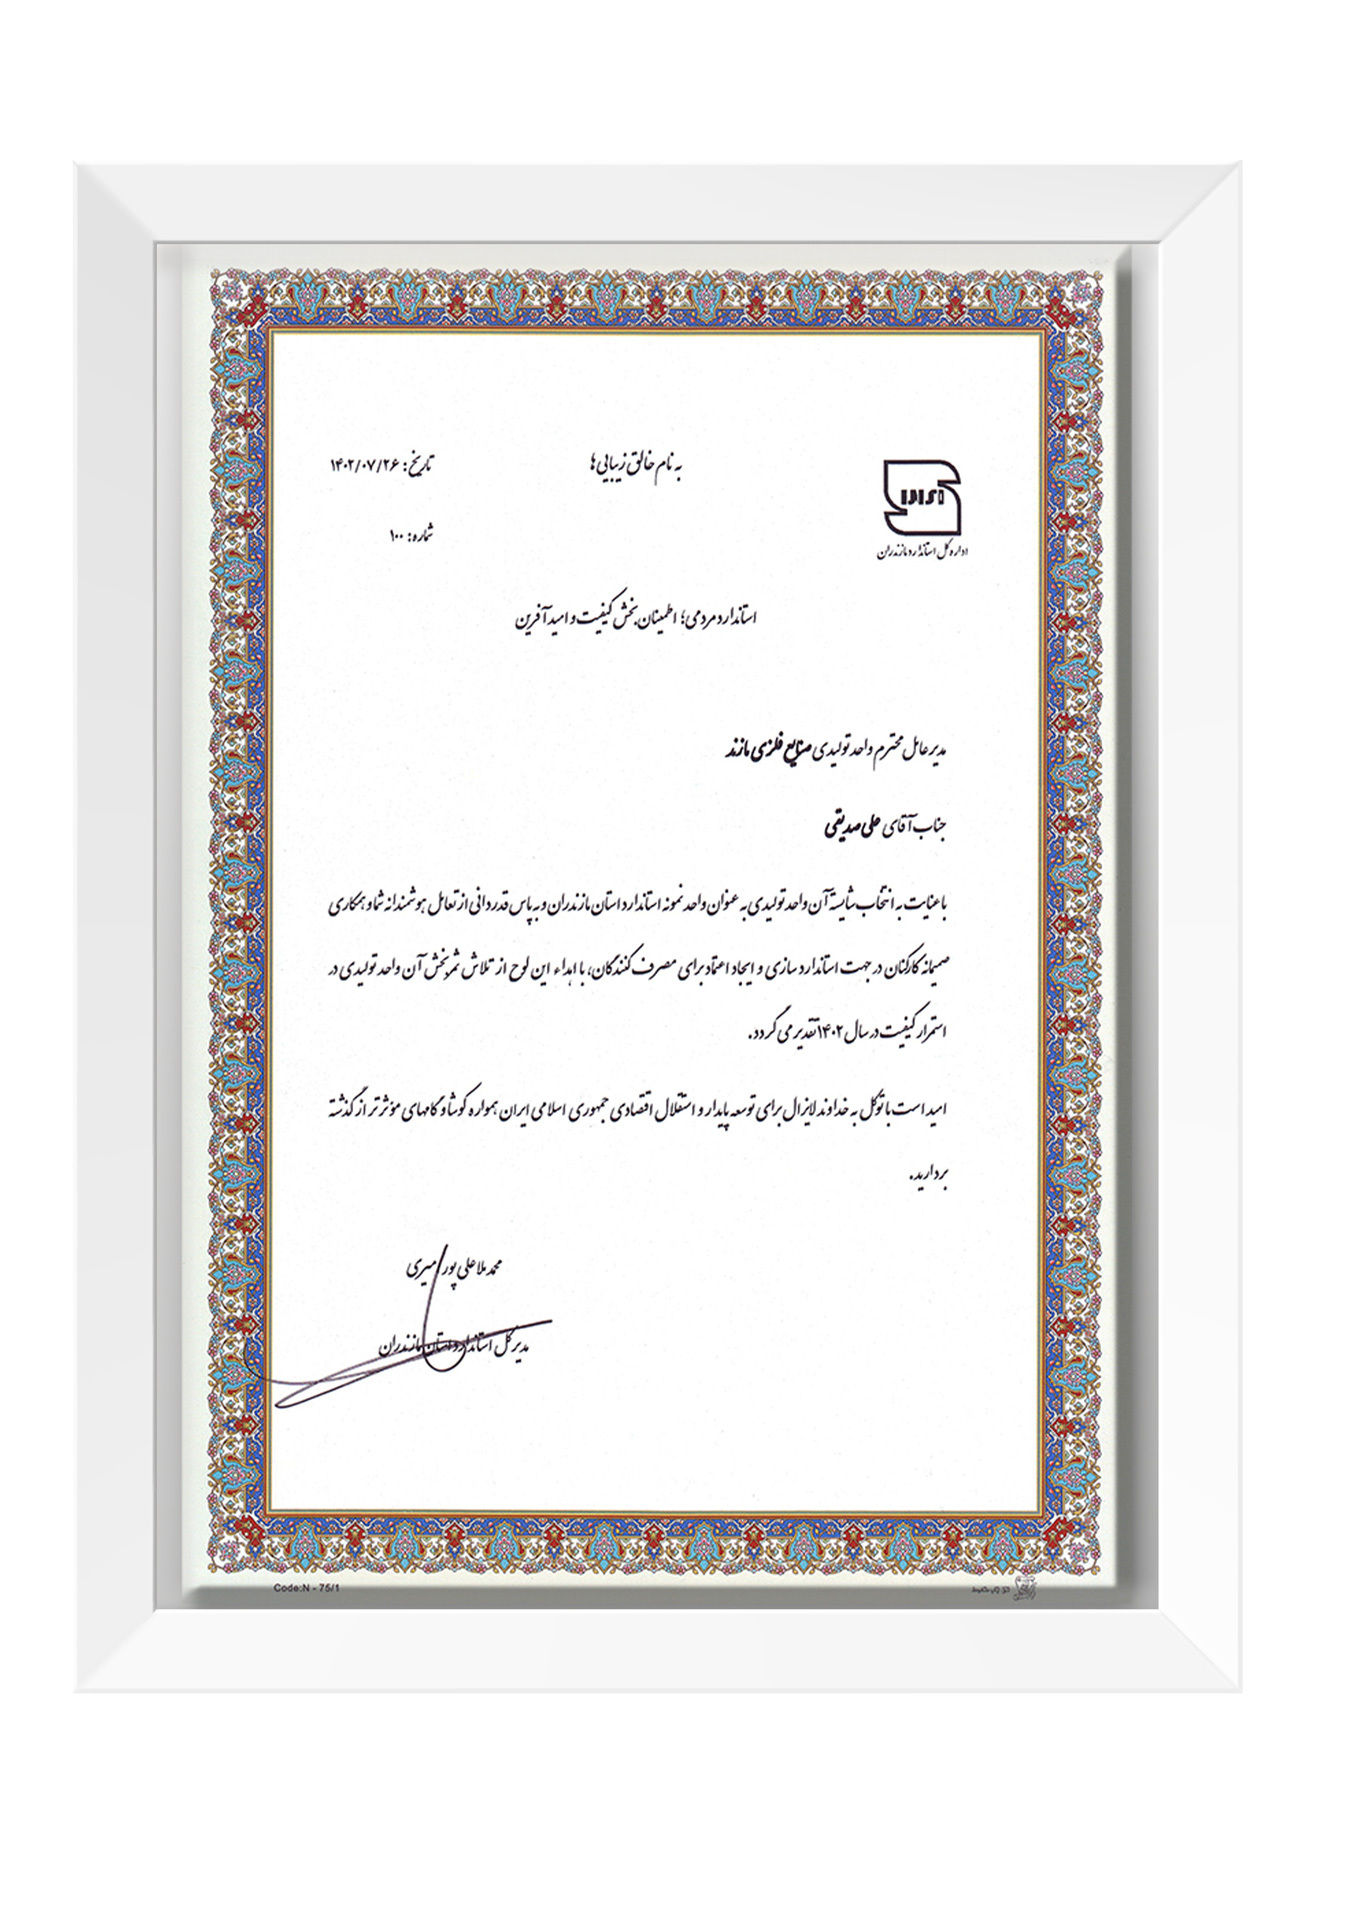 به نام خالق زیبایی ها
تاریخ: ۱۴۰۲/۰۷/۲۶
شماره: ۱۰۰
اداره کل استاندارد مازندران
استاندارد مردمی؛ اطمینان بخش کیفیت و امید آفرین
مدیر عامل محترم واحد تولیدی صنایع فلزی مازند
جناب آقای علی صدیقی
با عنایت به انتخاب شایسته آن واحد تولیدی به عنوان واحد نمونه استاندارد استان مازندران و به پاس قدردانی از تعامل هوشمندانه شما و همکاری
صمیمانه کارکنان در جهت استاندارد سازی و ایجاد اعتماد برای مصرف کنندگان، با اهداء این لوح از تلاش ثمربخش آن واحد تولیدی در
استمرار کیفیت در سال ۱۴۰۲ تقدیر می گردد.
امید است با توکل به خداوند لایزال برای توسعه پایدار و استقلال اقتصادی جمهوری اسلامی ایران همواره کوشا و گامهای مؤثر تر از گذشته
بردارید.
محمد ملا علی پور امیری
مدیر کل استاندارد استان مازندران
Code:N - 75/1